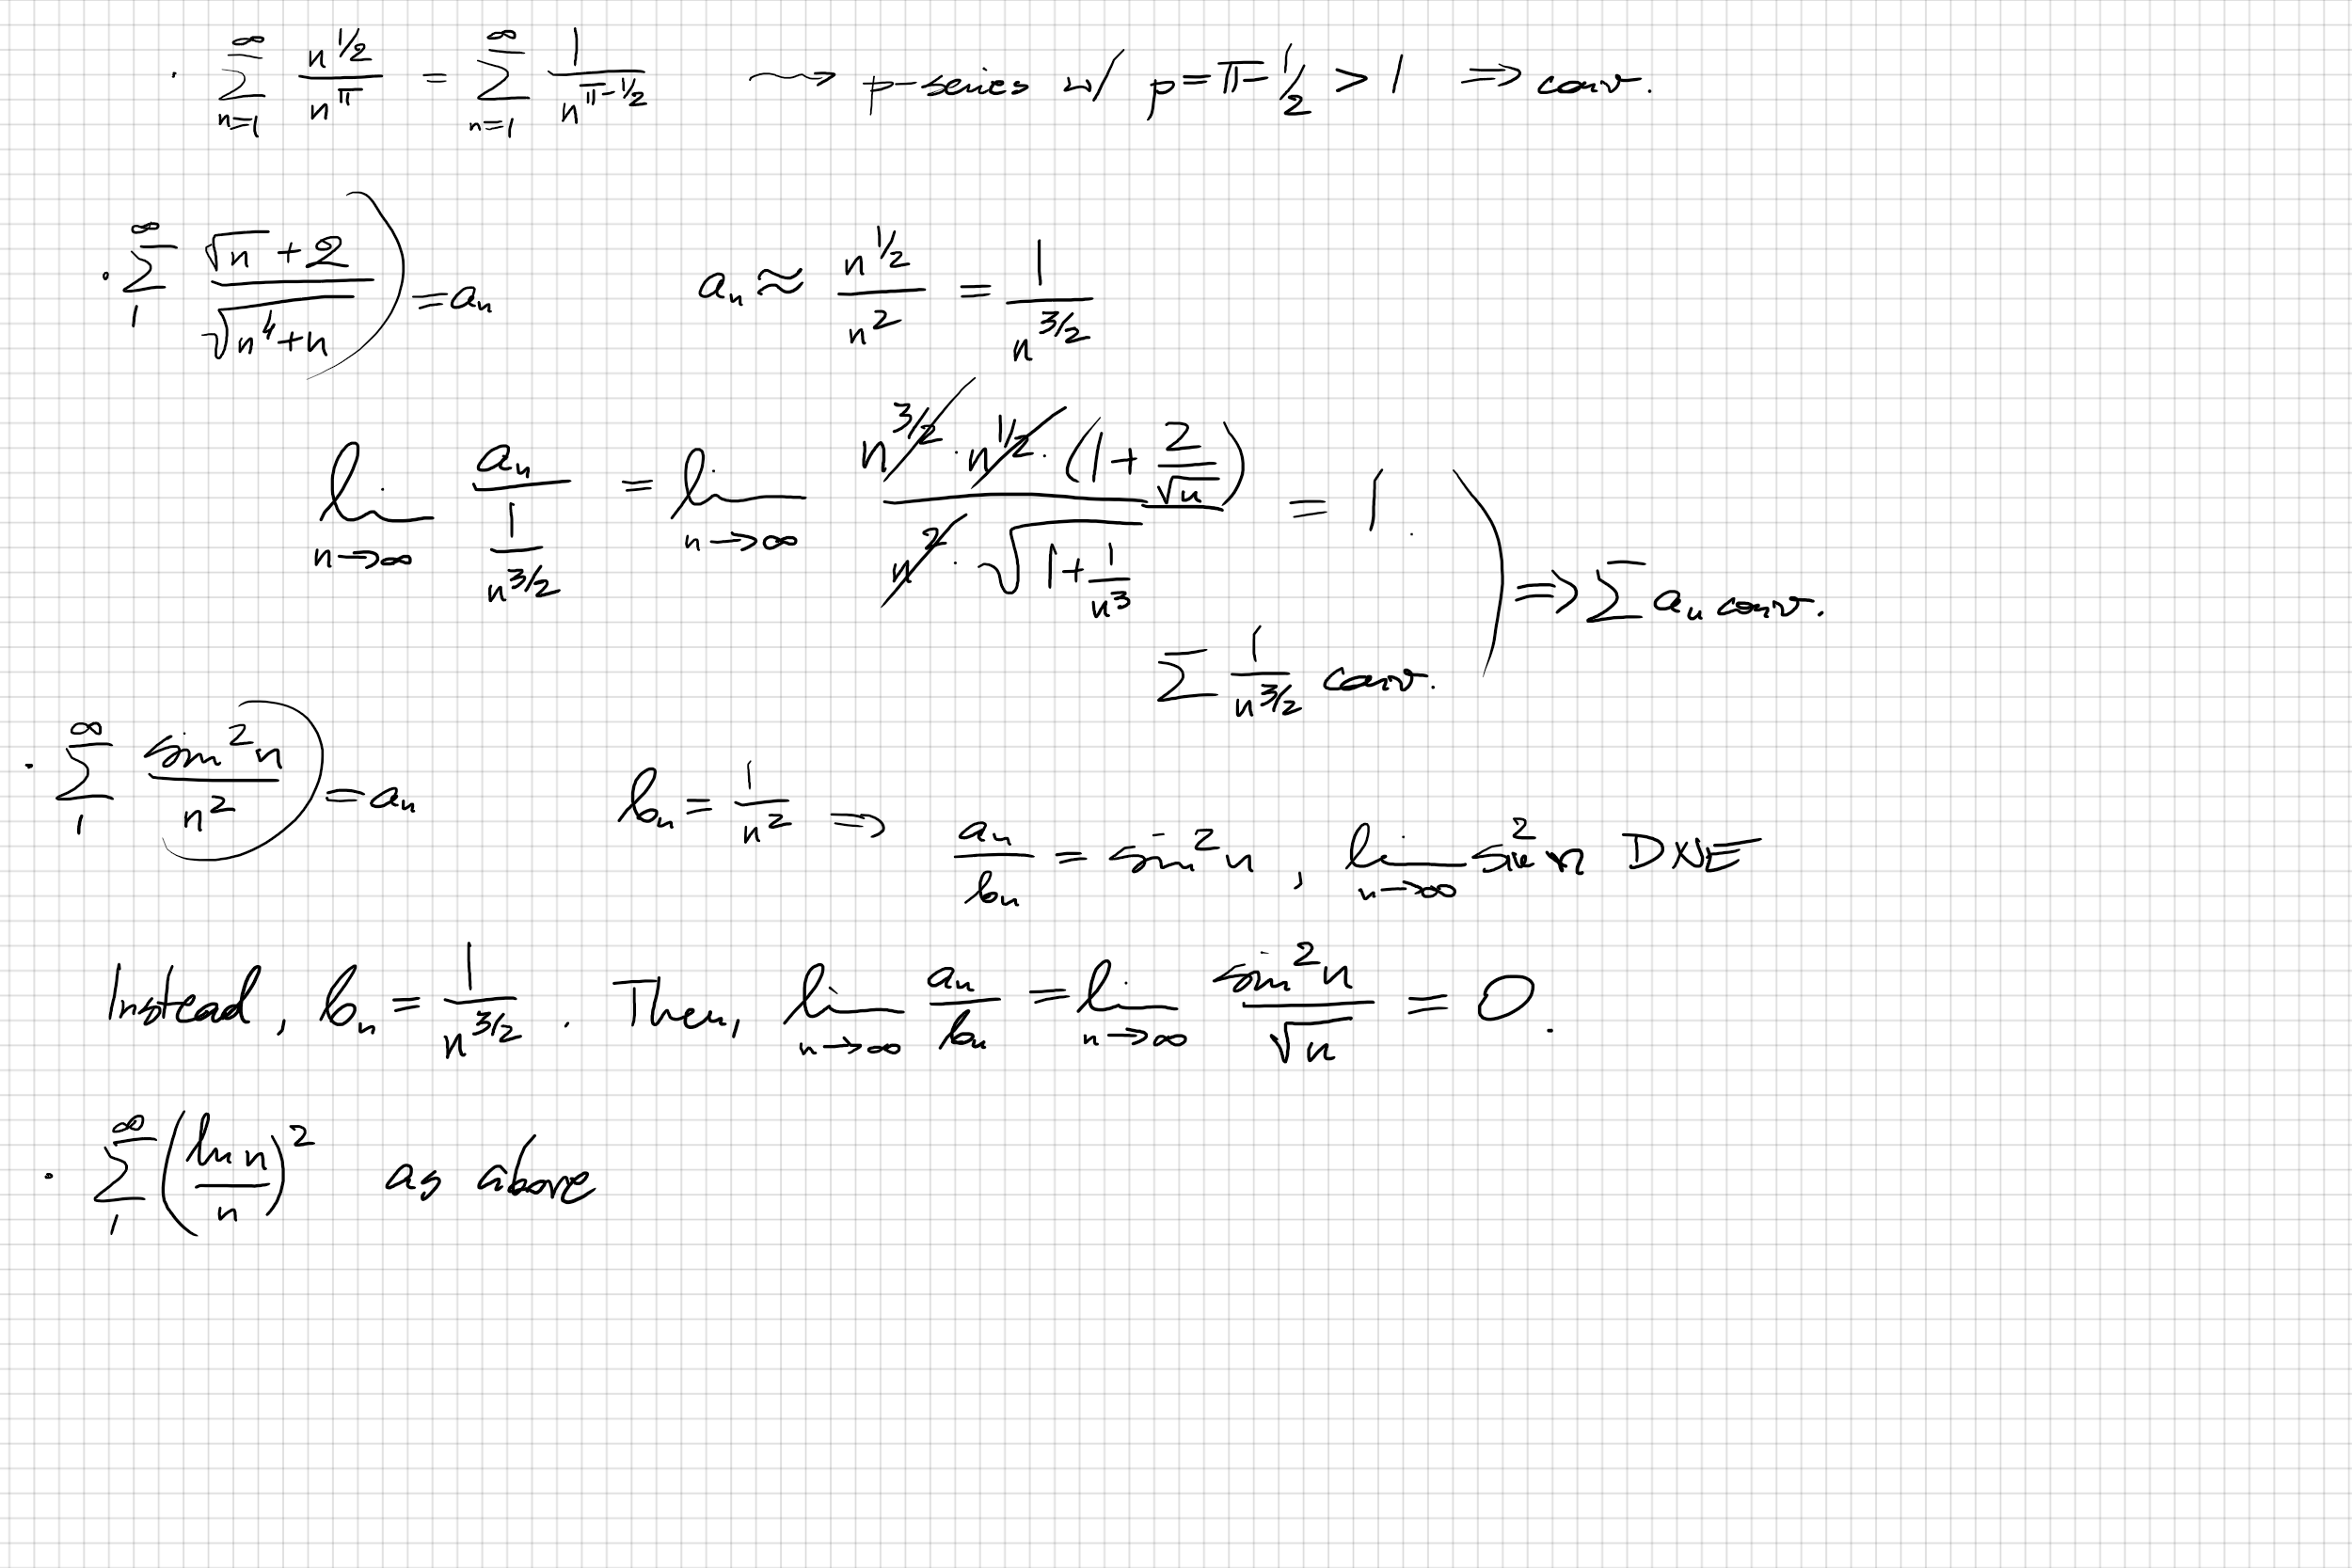 · ∑_{n=1}^{∞} n^{1/2}/n^{π} = ∑_{n=1}^{∞} 1/n^{π-1/2} ⇝ p-series w/ p=π-1/2 > 1 ⇒ conv.
· ∑_{1}^{∞} (√n + 2)/√(n^4+n) ) = a_n    a_n ≈ n^{1/2}/n^2 = 1/n^{3/2}
lim_{n→∞} a_n/(1/n^{3/2}) = lim_{n→∞} (n^{3/2} · n^{1/2} · (1 + 2/√n))/(n^2 · √(1+1/n^3)) = 1.
∑ 1/n^{3/2} conv. ) ⇒ ∑ a_n conv.
· ∑_{1}^{∞} sin^2 n/n^2 ) = a_n    b_n = 1/n^2 ⇒ a_n/b_n = sin^2 n, lim_{n→∞} sin^2 n DNE
Instead, b_n = 1/n^{3/2}. Then, lim_{n→∞} a_n/b_n = lim_{n→∞} sin^2 n/√n = 0.
· ∑_{1}^{∞} (ln n/n)^2 as above